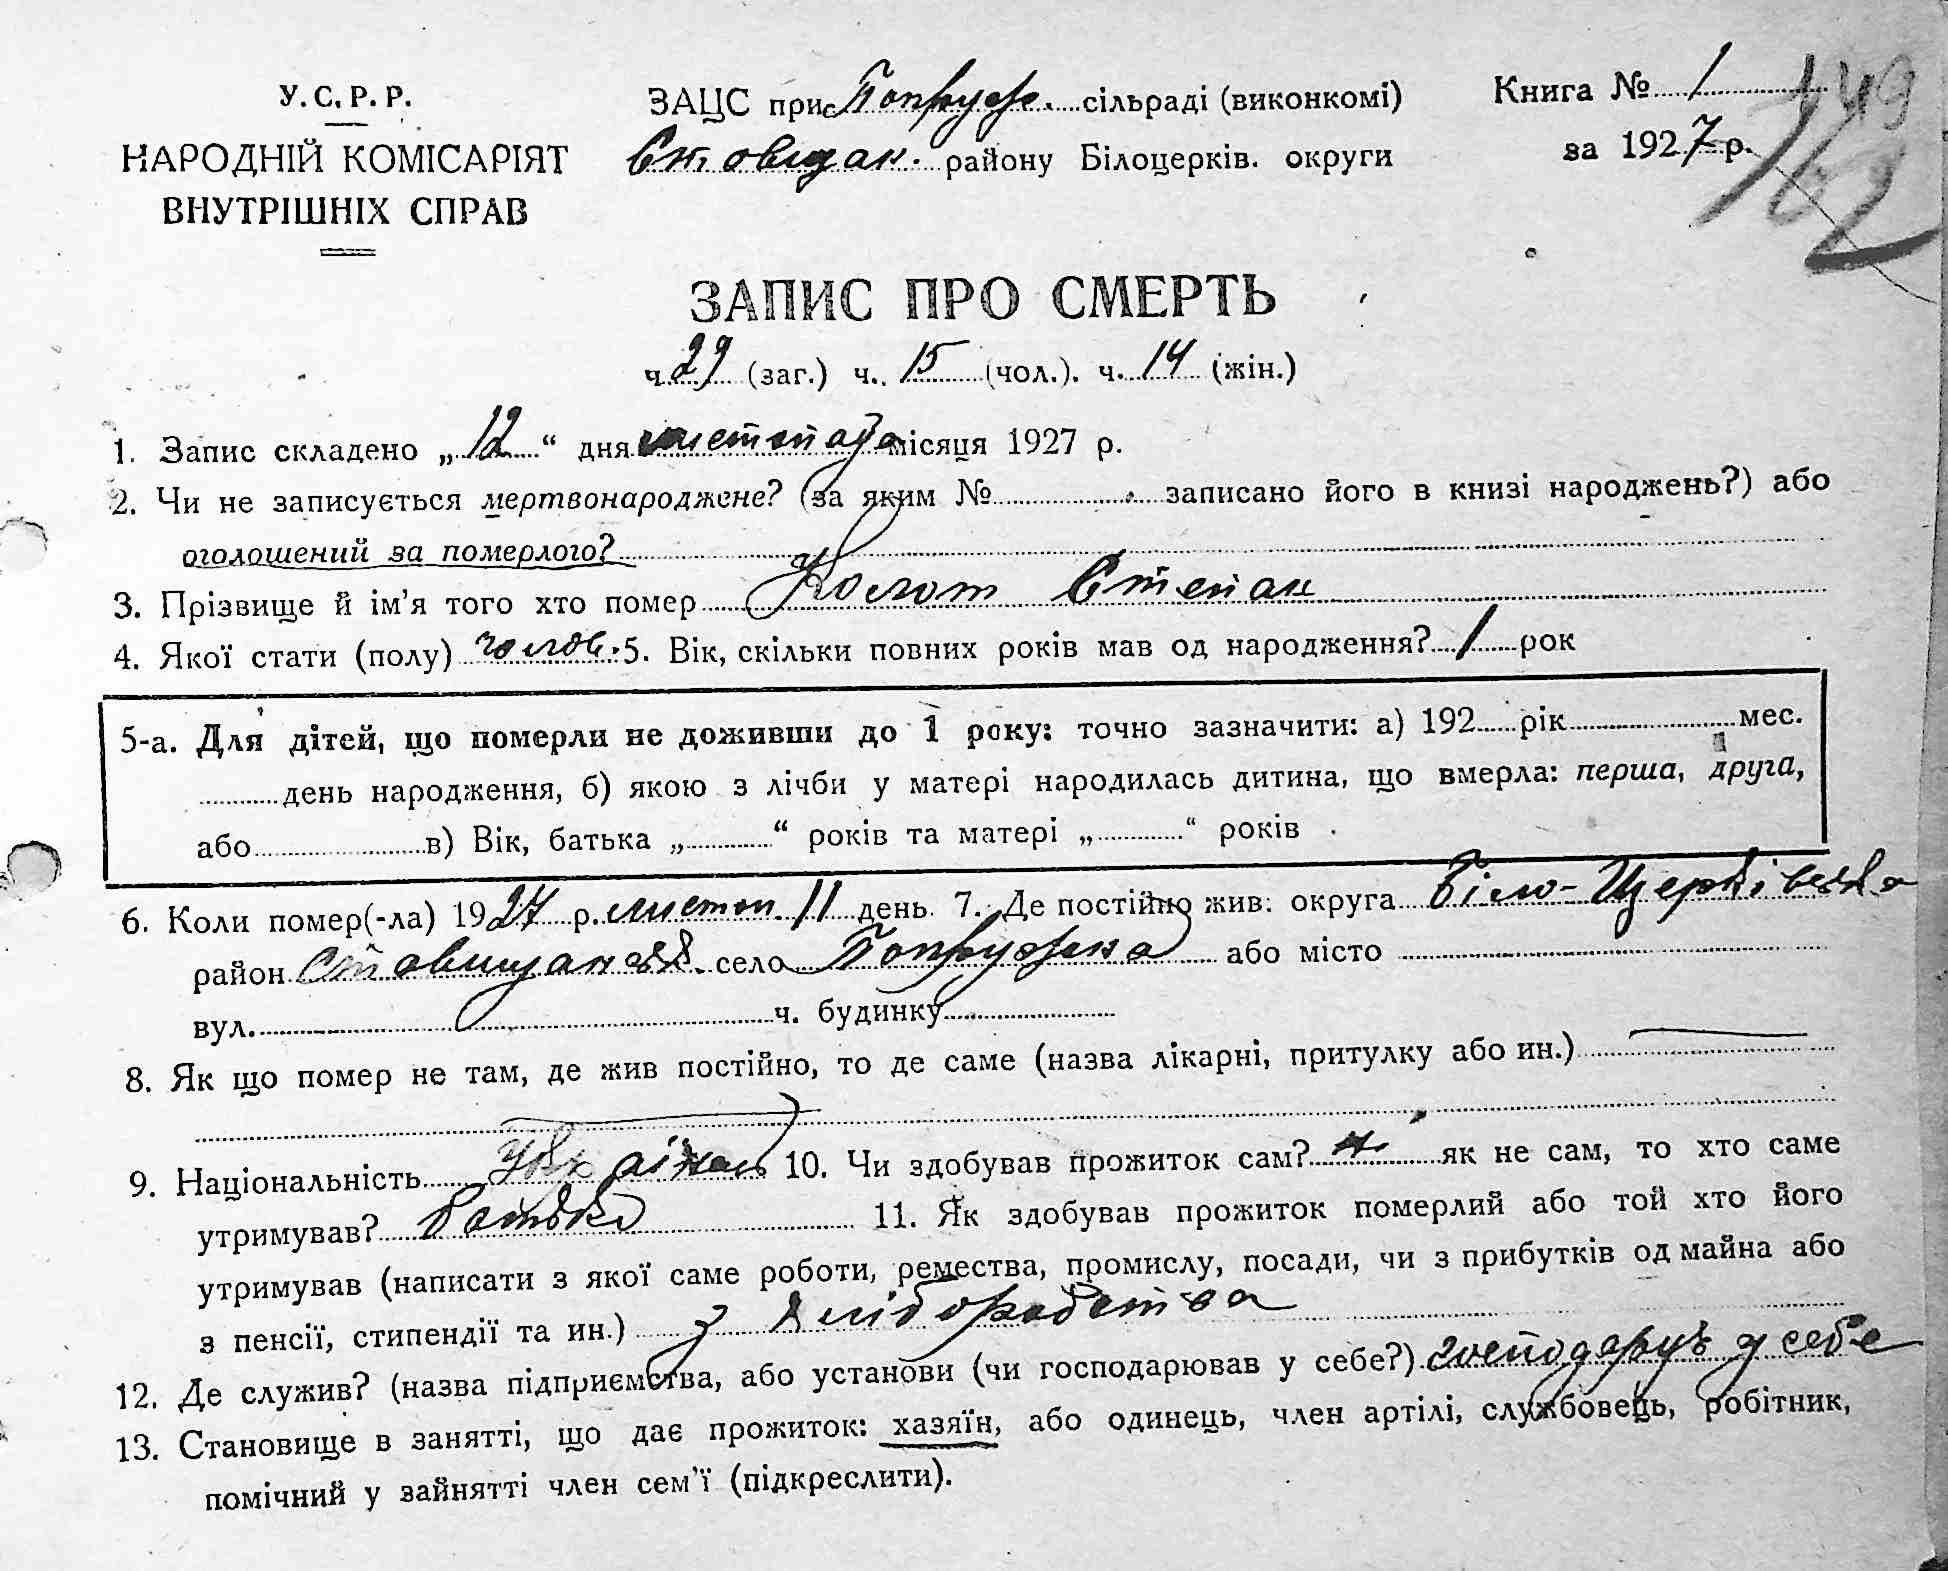 У.С.Р.Р.
НАРОДНІЙ КОМІСАРІЯТ
ВНУТРІШНІХ СПРАВ
ЗАЦС при с Попруж. сільраді (виконкомі)
Ставищан. району Білоцерків. округи
Книга № 1
за 1927 р.
149
162
ЗАПИС ПРО СМЕРТЬ
ч. 29 (заг.) ч. 15 (чол.). ч. 14 (жін.)
1. Запис складено „12“ дня листопада місяця 1927 р.
2. Чи не записується мертвонароджене? (за яким № записано його в книзі народжень?) або
оголошений за померлого?
3. Прізвище й ім'я того хто помер Колот Степан
4. Якої стати (полу) чолов. 5. Вік, скільки повних років мав од народження? 1 рок
5-а. Для дітей, що померли не доживши до 1 року: точно зазначити: а) 192 рік мес.
день народження, б) якою з лічби у матері народилась дитина, що вмерла: перша, друга,
або в) Вік, батька „ “ років та матері „ “ років
6. Коли помер(-ла) 1927 р. листоп. 11 день 7. Де постійно жив: округа Біло-Церківська
район Ставищанськ. село Попружна або місто
вул. ч. будинку
8. Як що помер не там, де жив постійно, то де саме (назва лікарні, притулку або ин.)
9. Національність Українець 10. Чи здобував прожиток сам? ні як не сам, то хто саме
утримував? батько 11. Як здобував прожиток померлий або той хто його
утримував (написати з якої саме роботи, ремества, промислу, посади, чи з прибутків од майна або
з пенсії, стипендії та ин.) з хліборобства
12. Де служив? (назва підприємства, або установи (чи господарював у себе?) господарує у себе
13. Становище в занятті, що дає прожиток: хазяїн, або одинець, член артілі, службовець, робітник,
помічний у зайнятті член сем'ї (підкреслити).